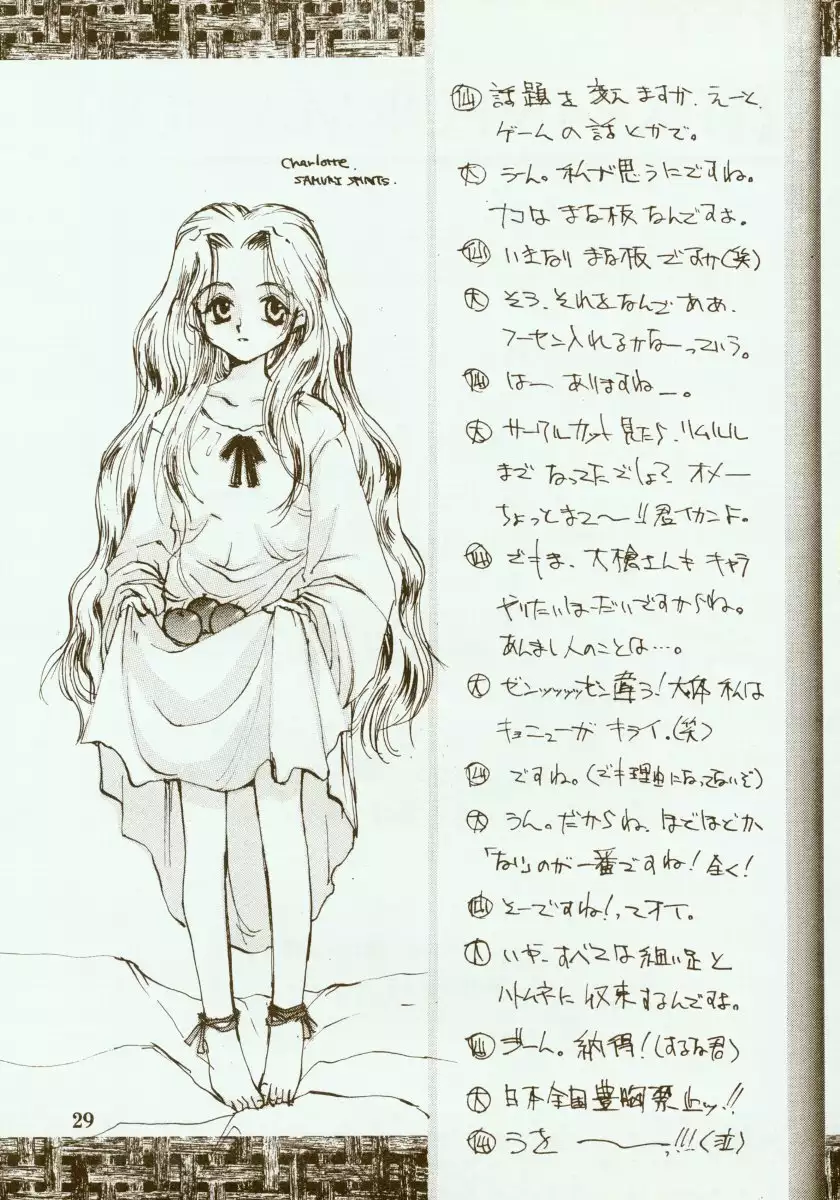 Charlotte.
SAMURI SPIRITS.
山 話題を変えますか、えーと、
ゲームの話とかで。
大 うーん。私が思うにですね。
ナコはまな板なんですよ。
山 いきなりまな板ですか(笑)
大 そう、それをなんでああ、
フーセン入れるかなーっていう。
山 はー ありますねー。
大 サークルカット見たら、リムルル
までなってたでしょ? オメー
ちょっとまて〜!!君イカンよ。
山 でもま、大槍さんもキャラ
やりたいほーだいですからね。
あんまし人のことは…。
大 ゼンッッッッゼン違う!大体私は
キョニューがキライ.(笑)
山 ですね。(でも理由になってないぞ)
大 うん。だからね、ほどほどか
「ない」のが一番ですね!全く!
山 そーですね!ってオイ。
大 いや、すべては細い足と
ハトムネに収束するんですよ。
山 うーん。納得!(するな君)
大 日本全国豊胸禁止ッ!!
山 うを ーーーっ!!!(泣)
29